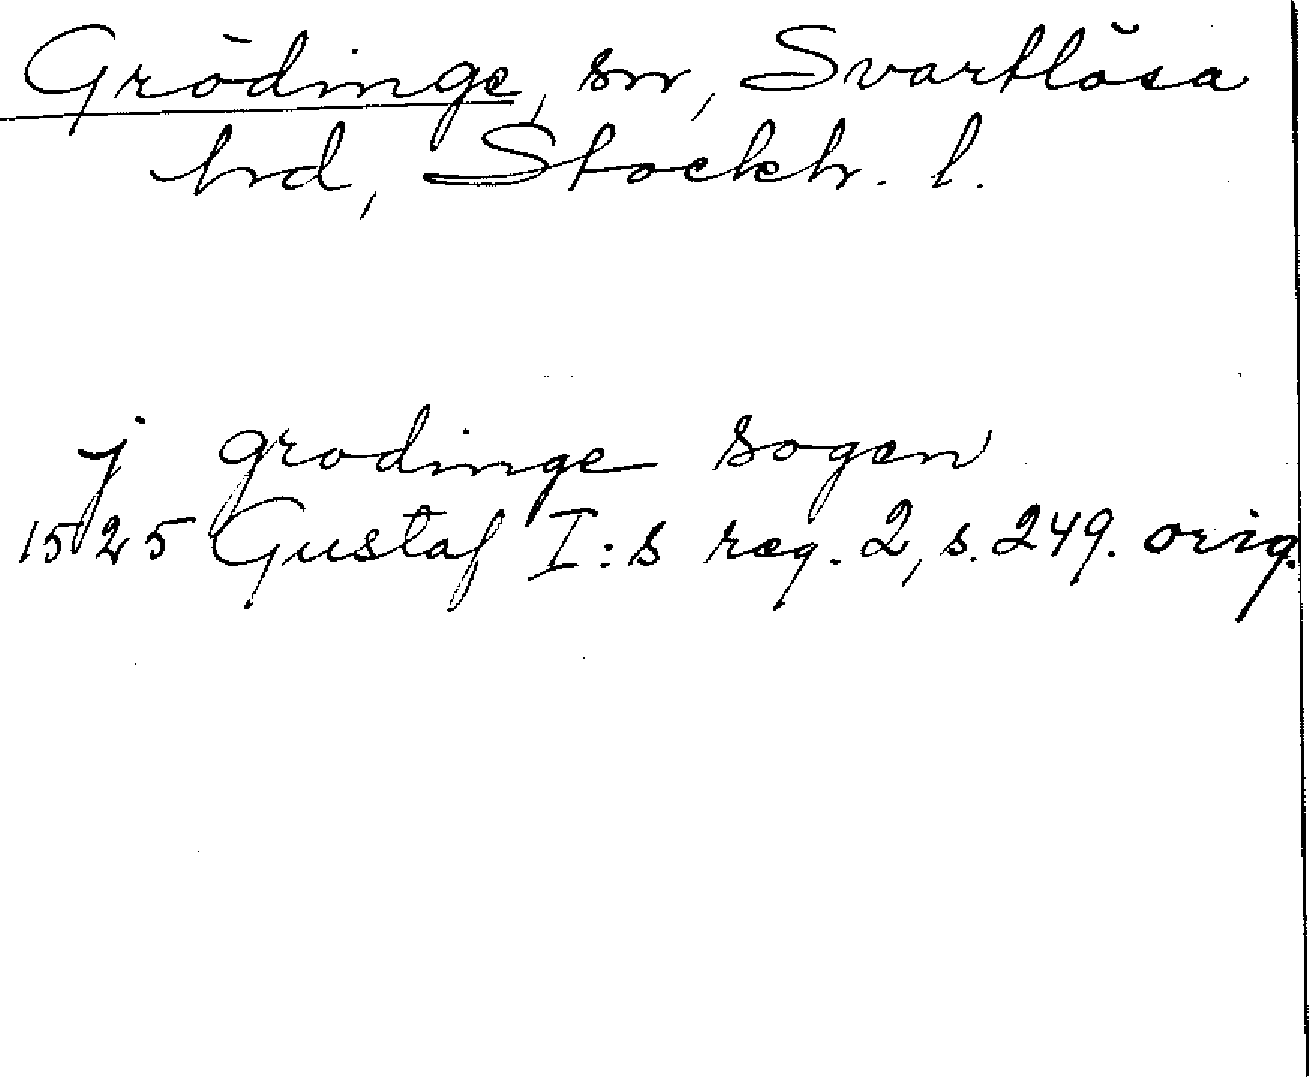 Grödinge, sn, Svartlösa
hrd, Stockh. l.
j grodinge sogen
1525 Gustaf I:s reg. 2, s. 249. orig.